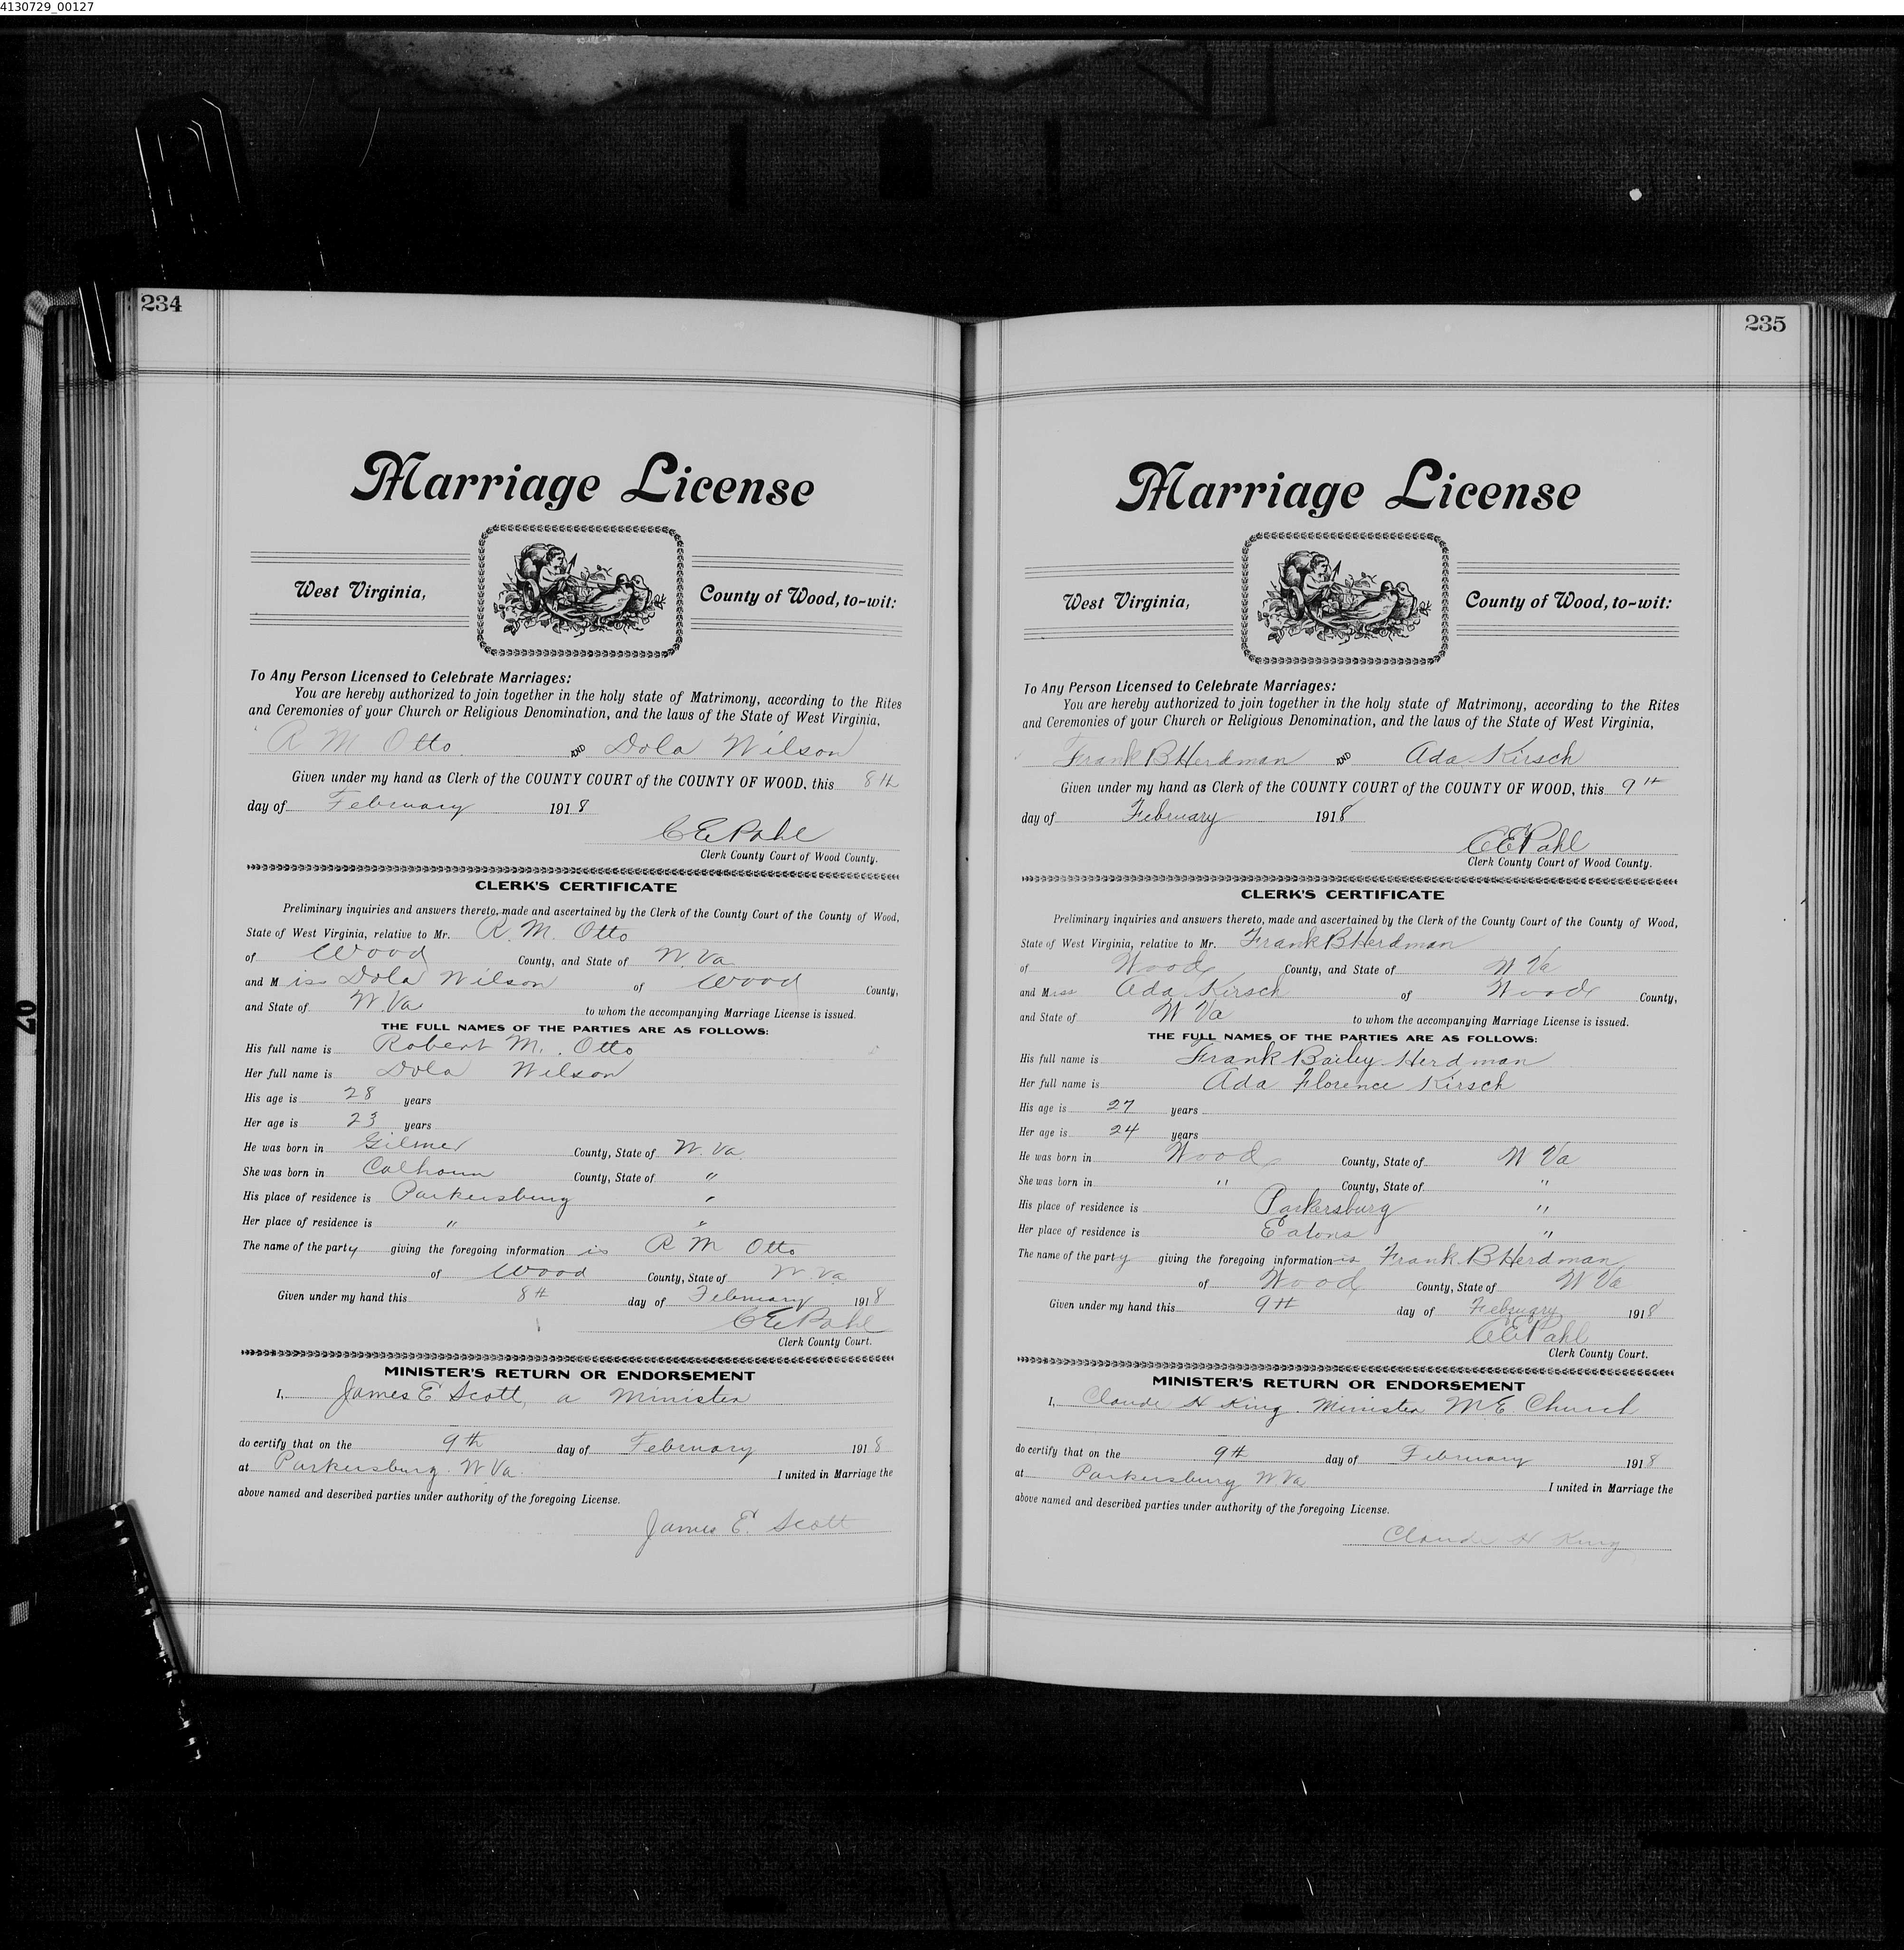 4130729_00127
234
Marriage License
West Virginia,
County of Wood, to-wit:
To Any Person Licensed to Celebrate Marriages:
You are hereby authorized to join together in the holy state of Matrimony, according to the Rites
and Ceremonies of your Church or Religious Denomination, and the laws of the State of West Virginia,
R M Otto AND Dola Wilson
Given under my hand as Clerk of the COUNTY COURT of the COUNTY OF WOOD, this 8th
day of February 1918
C E Pahl
Clerk County Court of Wood County.
CLERK'S CERTIFICATE
Preliminary inquiries and answers thereto, made and ascertained by the Clerk of the County Court of the County of Wood,
State of West Virginia, relative to Mr. R. M. Otto
of Wood County, and State of W. Va
and Miss Dola Wilson of Wood County,
and State of W. Va to whom the accompanying Marriage License is issued.
THE FULL NAMES OF THE PARTIES ARE AS FOLLOWS:
His full name is Robert M. Otto
Her full name is Dola Wilson
His age is 28 years
Her age is 23 years
He was born in Gilmer County, State of W. Va.
She was born in Calhoun County, State of "
His place of residence is Parkersburg "
Her place of residence is " "
The name of the party giving the foregoing information is R M Otto
of Wood County, State of W. Va
Given under my hand this 8th day of February 1918
C E Pahl
Clerk County Court.
MINISTER'S RETURN OR ENDORSEMENT
I, James E. Scott, a Minister
do certify that on the 9th day of February 1918
at Parkersburg. W Va. I united in Marriage the
above named and described parties under authority of the foregoing License.
James E. Scott
235
Marriage License
West Virginia,
County of Wood, to-wit:
To Any Person Licensed to Celebrate Marriages:
You are hereby authorized to join together in the holy state of Matrimony, according to the Rites
and Ceremonies of your Church or Religious Denomination, and the laws of the State of West Virginia,
Frank B Herdman AND Ada Kirsch
Given under my hand as Clerk of the COUNTY COURT of the COUNTY OF WOOD, this 9th
day of February 1918
C E Pahl
Clerk County Court of Wood County.
CLERK'S CERTIFICATE
Preliminary inquiries and answers thereto, made and ascertained by the Clerk of the County Court of the County of Wood,
State of West Virginia, relative to Mr. Frank B Herdman
of Wood County, and State of W Va
and Miss Ada Kirsch of Wood County,
and State of W Va to whom the accompanying Marriage License is issued.
THE FULL NAMES OF THE PARTIES ARE AS FOLLOWS:
His full name is Frank Bailey Herdman
Her full name is Ada Florence Kirsch
His age is 27 years
Her age is 24 years
He was born in Wood County, State of W Va
She was born in " County, State of "
His place of residence is Parkersburg "
Her place of residence is Eatons "
The name of the party giving the foregoing information is Frank B Herdman
of Wood County, State of W Va
Given under my hand this 9th day of February 1918
C E Pahl
Clerk County Court.
MINISTER'S RETURN OR ENDORSEMENT
I, Claude H King. Minister M E Church
do certify that on the 9th day of February 1918
at Parkersburg W. Va I united in Marriage the
above named and described parties under authority of the foregoing License.
Claude H King